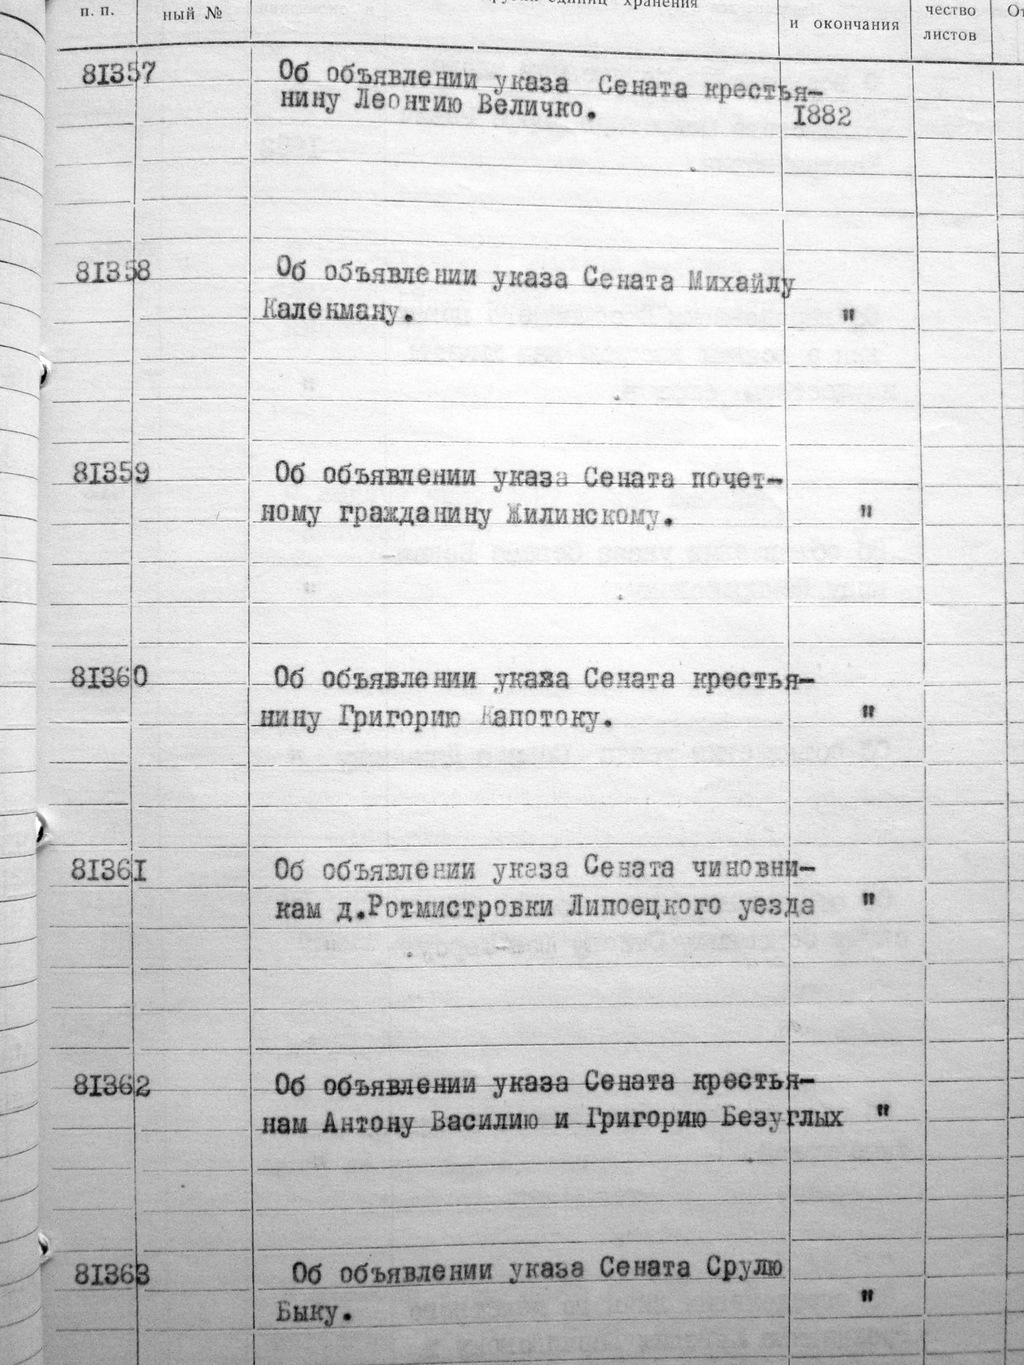 п. п.
ный №
единиц хранения
и окончания
чество
листов
От
81357
Об объявлении указа Сената крестья-
нину Леонтию Величко.
1882
81358
Об объявлении указа Сената Михайлу
Калекману.
"
81359
Об объявлении указа Сената почет-
ному гражданину Жилинскому.
"
81360
Об объявлении указа Сената крестья-
нину Григорию Капотоку.
"
81361
Об объявлении указа Сената чиновни-
кам д.Ротмистровки Липоецкого уезда
"
81362
Об объявлении указа Сената крестья-
нам Антону Василию и Григорию Безуглых "
81363
Об объявлении указа Сената Срулю
Быку.
"